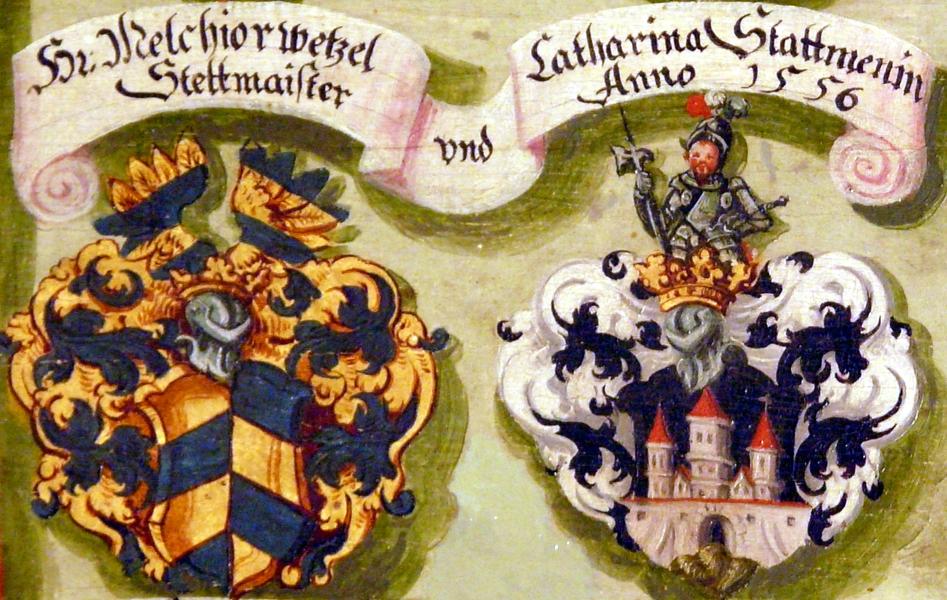 Hr. Melchior wetzel
Stettmaister
vnd
Catharina Stattmenin
Anno 1556